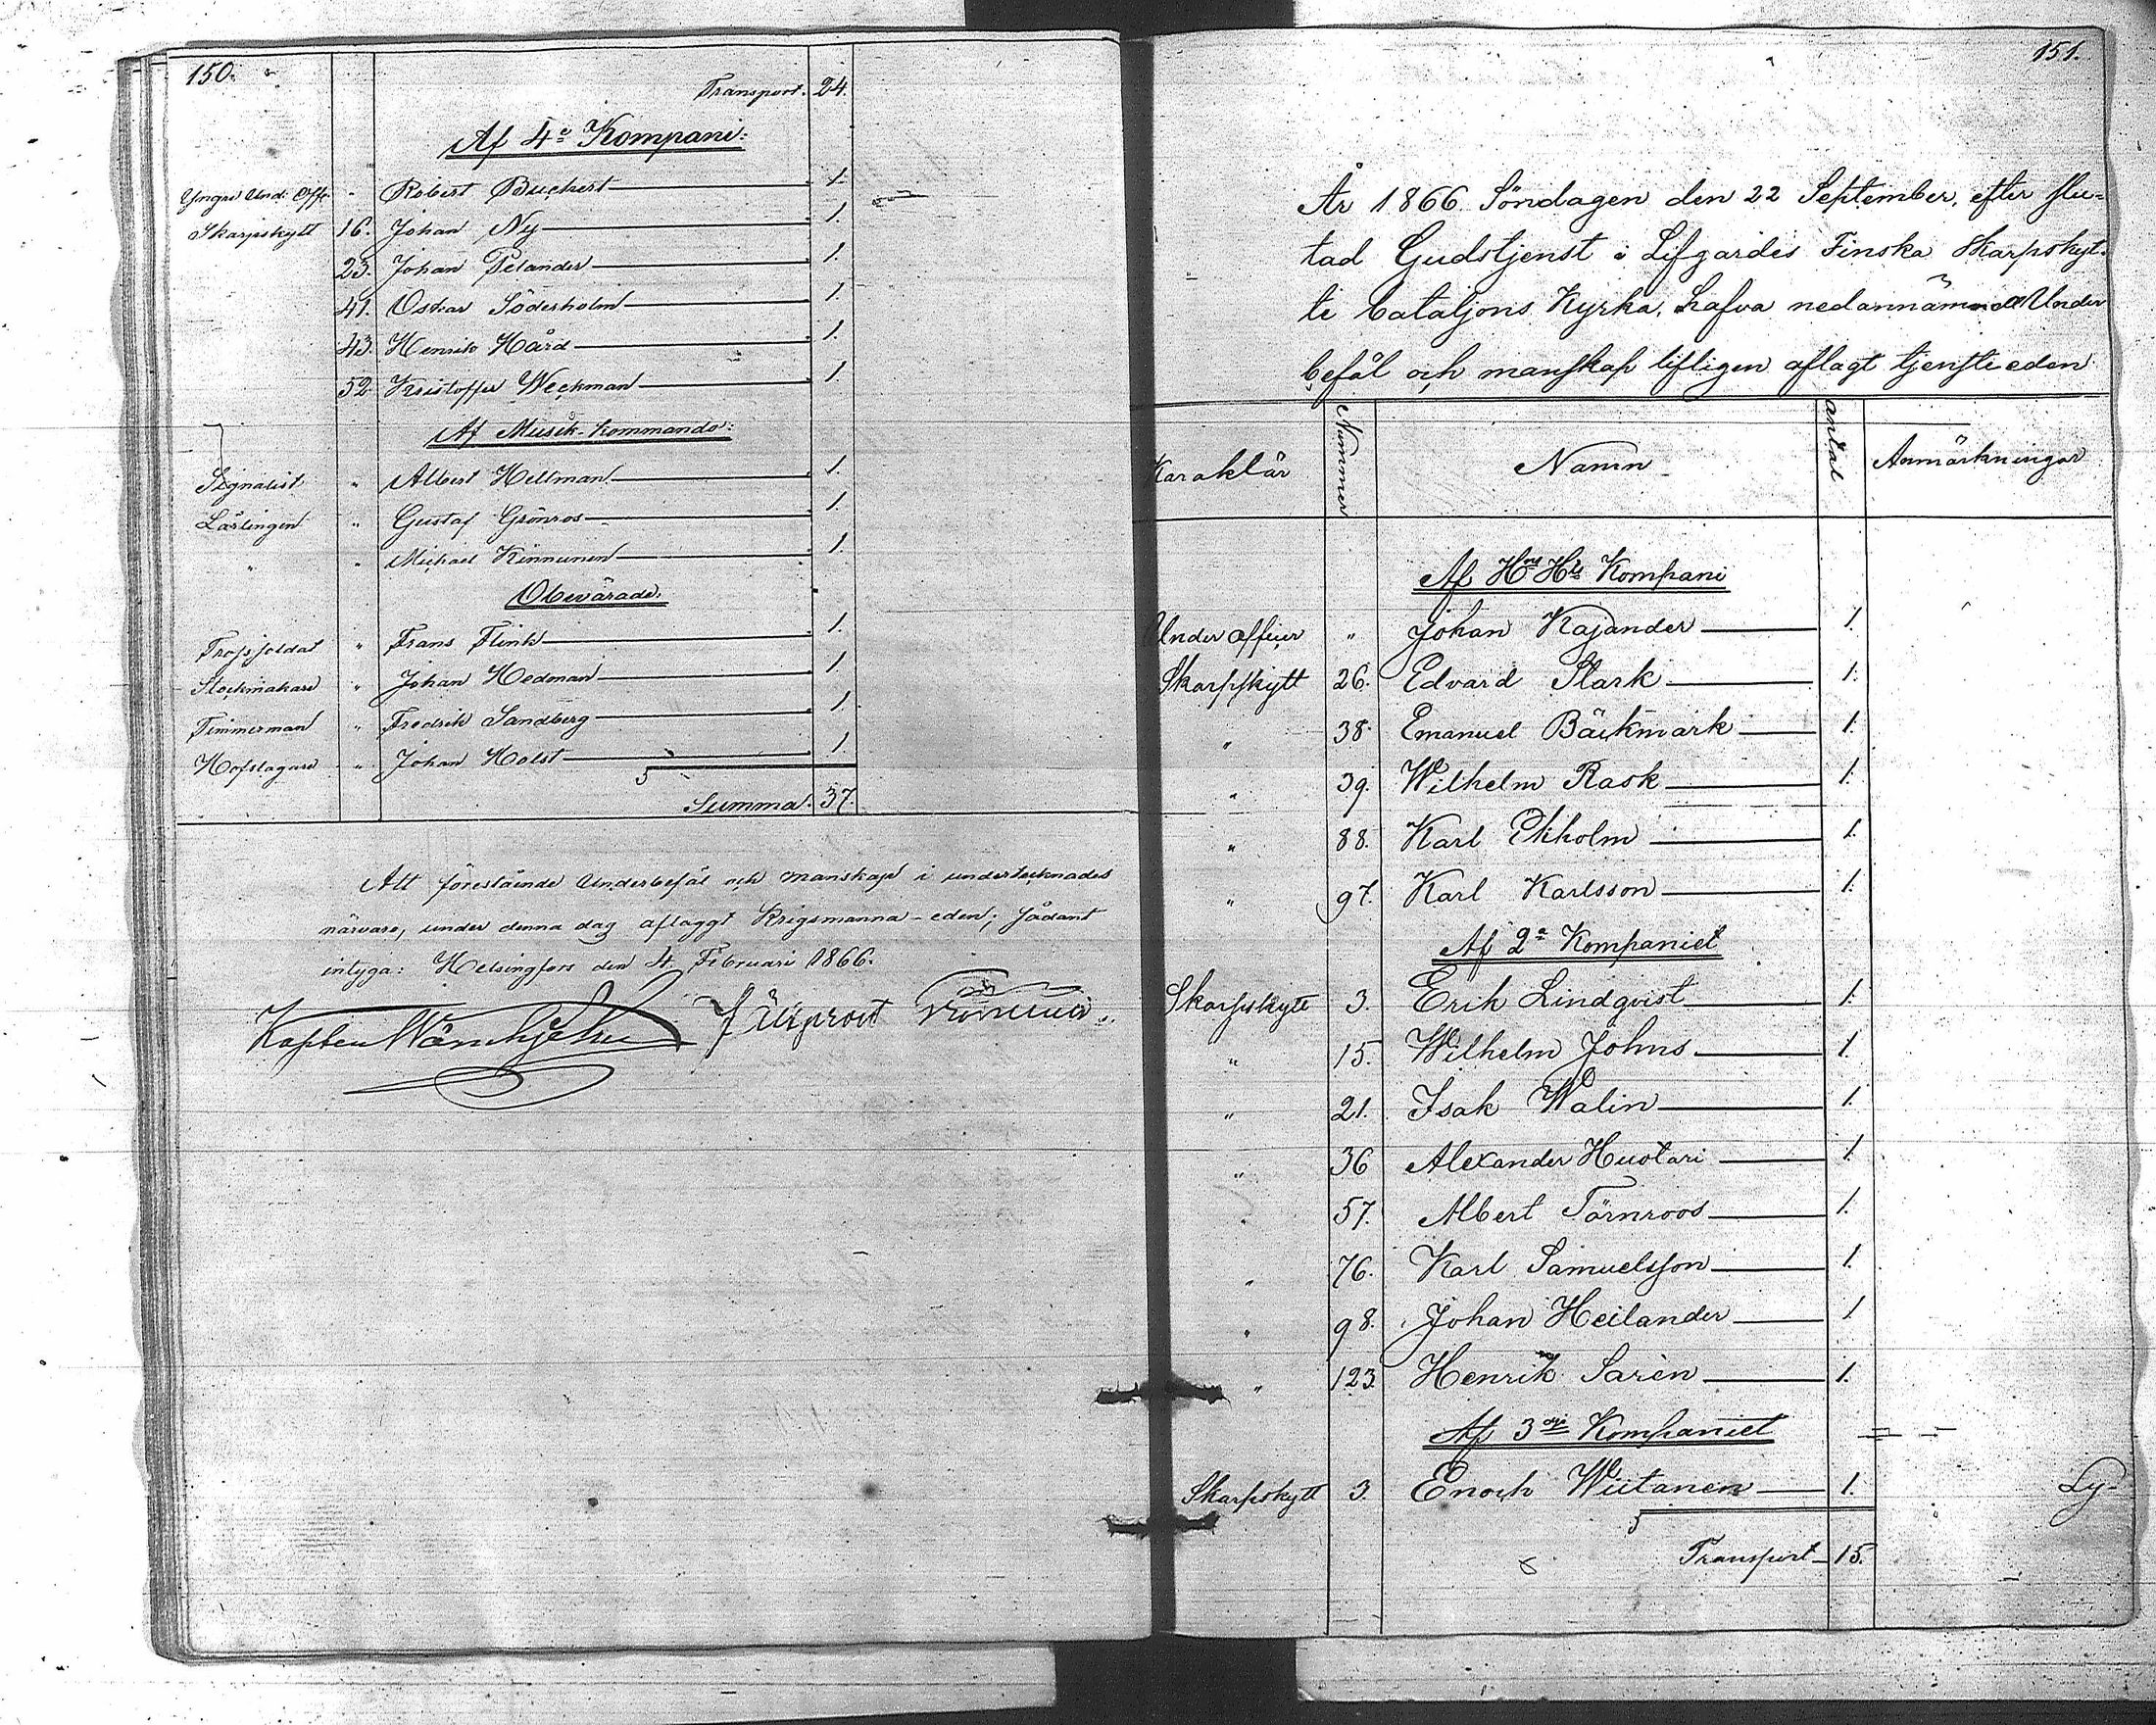 150.
Transport. 24.
Af 4e Kompani:
Yngre Und: Offr. " Robert Buchert 1.
Skarpskytt 16. Johan Ny 1.
23. Johan Pelander 1.
41. Oskar Söderholm 1.
43. Henrik Hård 1.
52 Kristoffer Weckman 1.
Af Musik-Kommando:
Signalist " Albert Hellman 1.
Lärlingen " Gustaf Grönros 1.
" " Michael Kinnunen 1.
Obevärade.
Trossoldat " Frans Flink 1.
Stockmakare " Johan Hedman 1.
Timmerman " Fredrik Sandberg 1.
Hofslagare " Johan Holst 1.
Summa. 37.
Att förestående Underbefäl och manskap i undertecknades
närvaro, under denna dag aflaggt Krigsmanna-eden; sådant
intyga: Helsingfors den 4. Februari 1866.
Kapten
151.
År 1866 Söndagen den 22 September, efter slu-
tad Gudstjenst i Lifgardes Finska Skarpskyt-
te bataljons Kyrka, hafva nedannämnde Under
befäl och manskap lifligen aflagt tjensteeden
Karaktär Nummer Namn antal Anmärkningar
Af Hns Hts Kompani
Under officer " Johan Kajander 1.
Skarpskytt 26. Edvard Stark 1.
" 38. Emanuel Bäckmark 1.
" 39. Wilhelm Rask 1.
" 88. Karl Ekholm 1.
" 97. Karl Karlsson 1.
Af 2a Kompaniet
Skarpskytt 3. Erik Lindqvist 1.
" 15. Wilhelm Johns 1.
" 21. Isak Walin 1.
" 36 Alexander Huotari 1.
" 57. Albert Törnroos 1.
" 76. Karl Samuelsson 1.
" 98. Johan Heilander 1
" 123 Henrik Sarèn 1.
Af 3dje Kompaniet
Skarpskytt 3. Enoch Wiitanen 1.
Ly-
Transport 15.